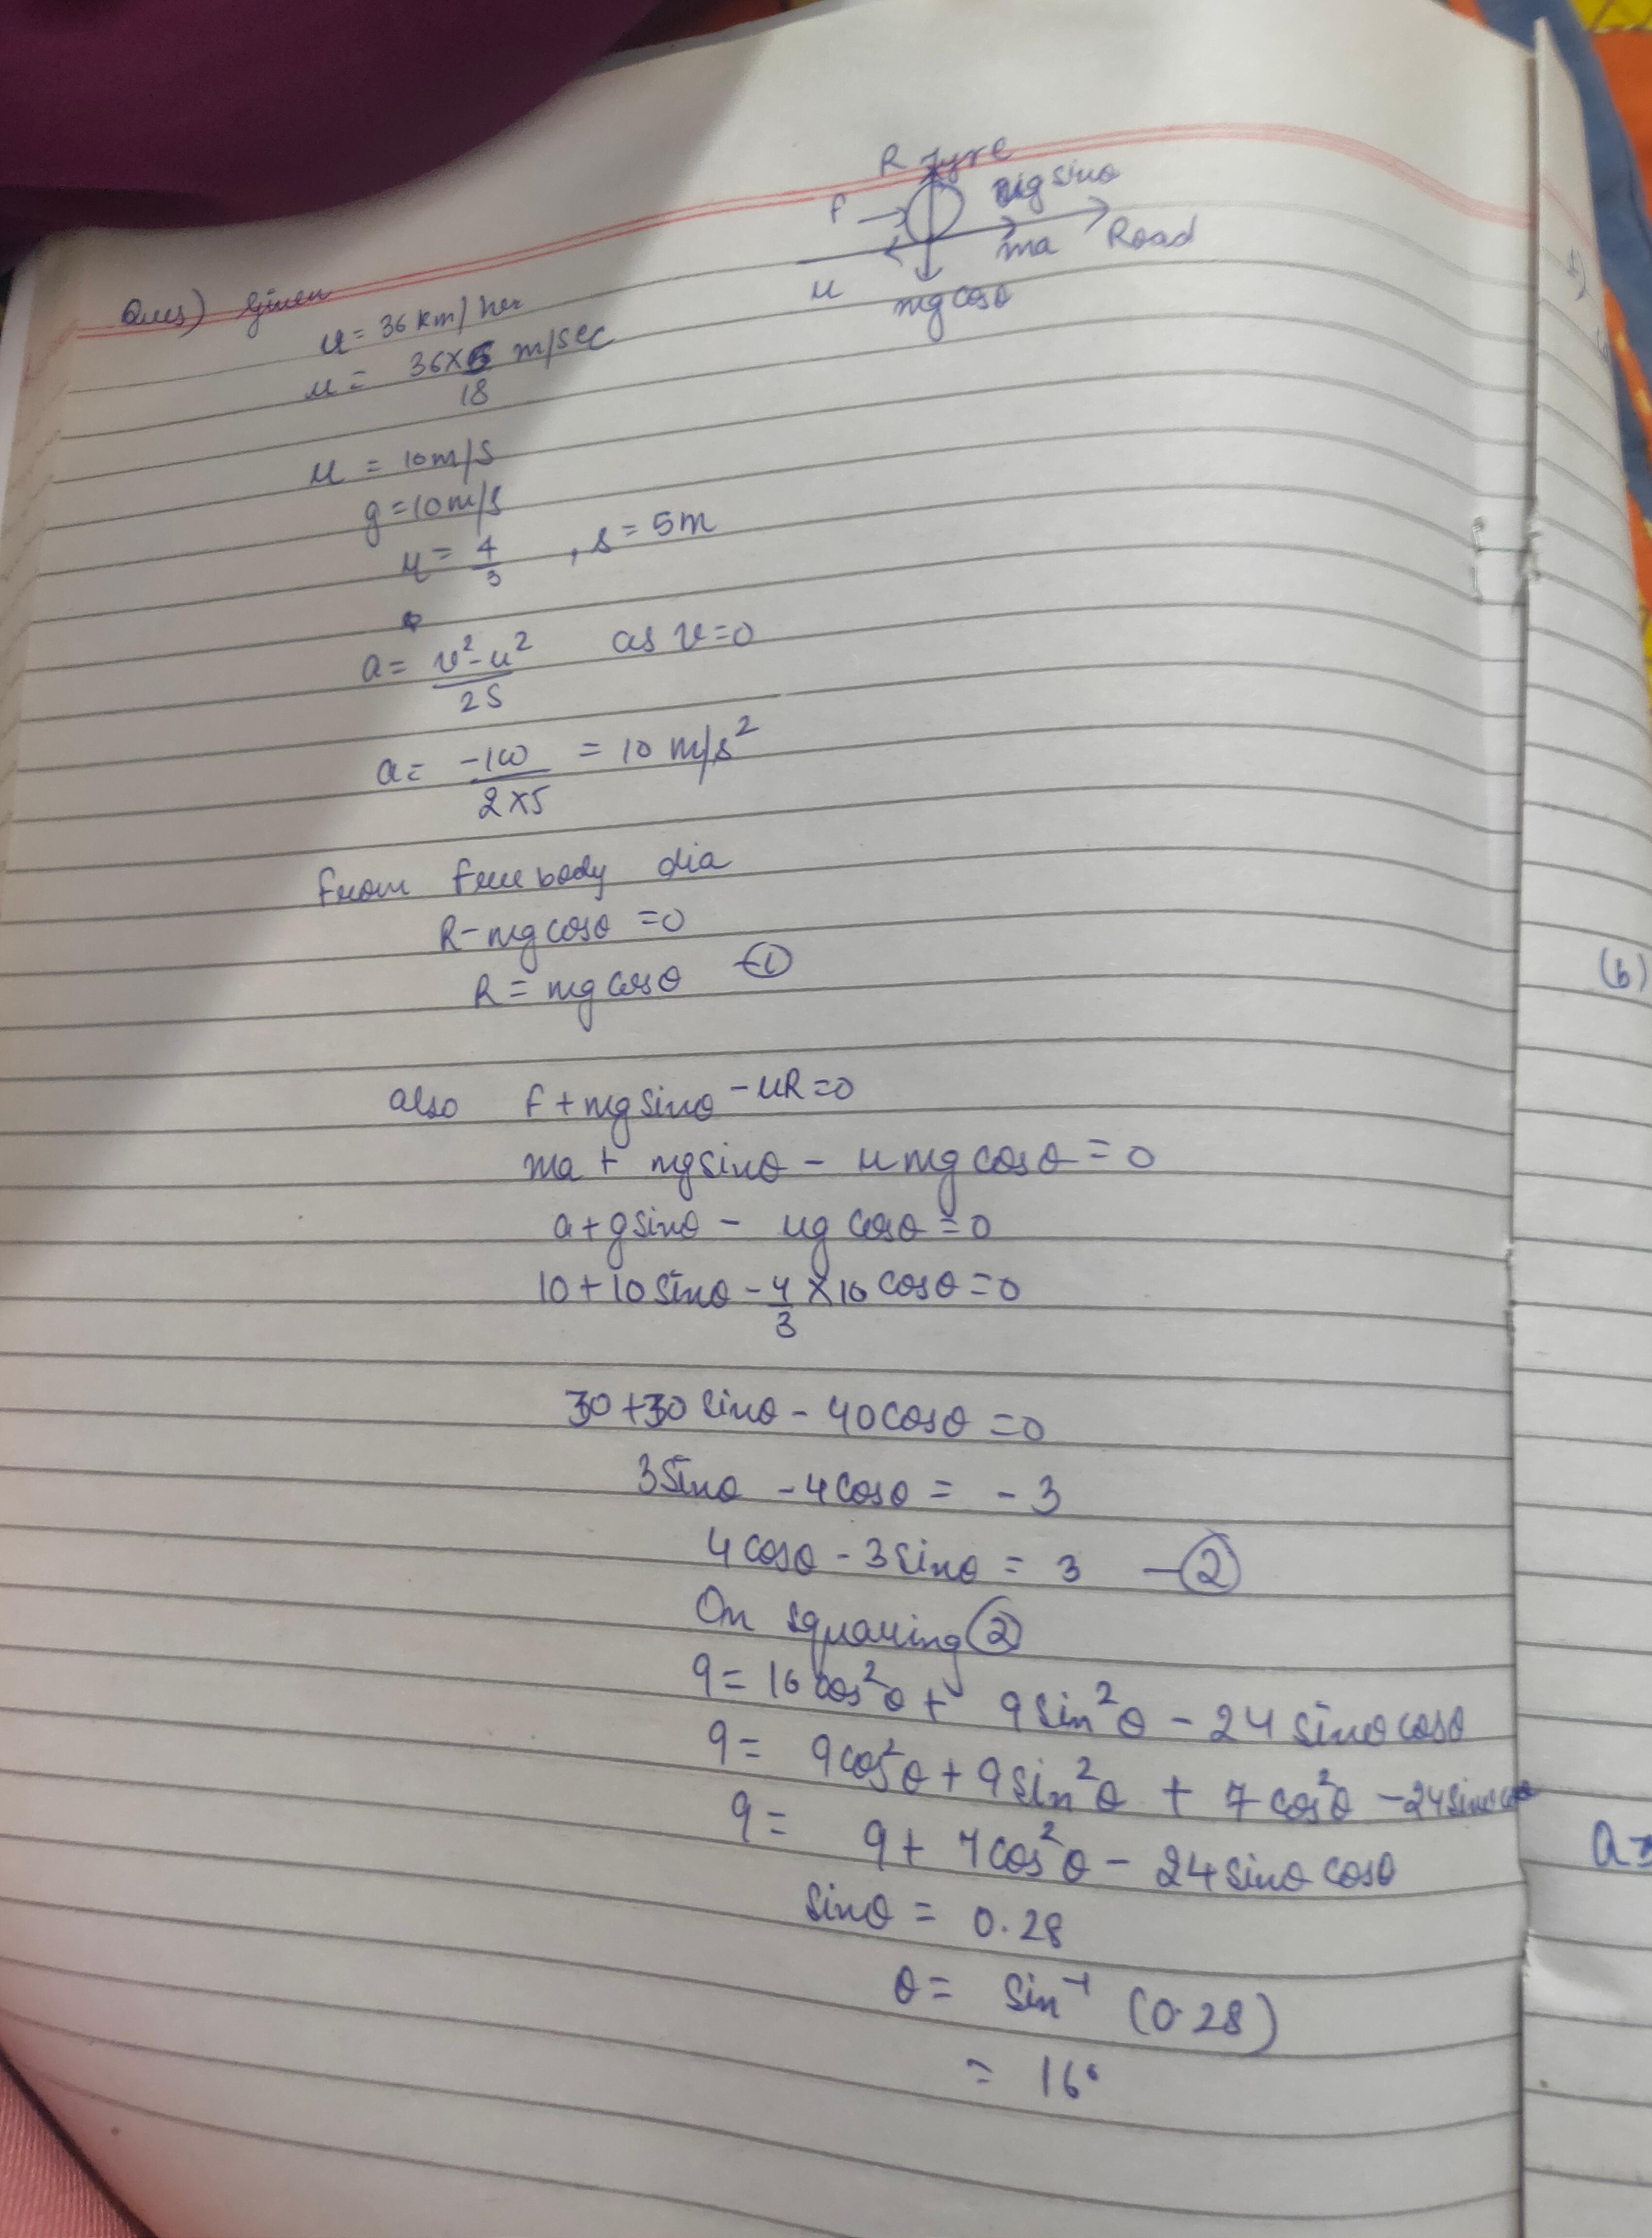 R Tyre
f mg sinθ
ma Road
u
mg cosθ
Ques) Given
u = 36 km/her
u = 36×5/18 m/sec
u = 10m/s
g = 10m/s
μ = 4/3 , s = 5m
a = v²-u²/2S as v=0
a = -100/2×5 = 10 m/s²
From free body dia
R-mg cosθ =0
R = mg cosθ -①
also f + mg sinθ - μR = 0
ma + mg sinθ - μ mg cosθ = 0
a + g sinθ - μg cosθ = 0
10 + 10 sinθ - 4/3 × 10 cosθ = 0
30 + 30 sinθ - 40 cosθ = 0
3 sinθ - 4 cosθ = - 3
4 cosθ - 3 sinθ = 3 -②
On squaring ②
9 = 16 cos²θ + 9 sin²θ - 24 sinθ cosθ
9 = 9 cos²θ + 9 sin²θ + 7 cos²θ - 24 sinθ cosθ
9 = 9 + 7 cos²θ - 24 sinθ cosθ
sinθ = 0.28
θ = sin⁻¹ (0.28)
= 16°
(b)
a=